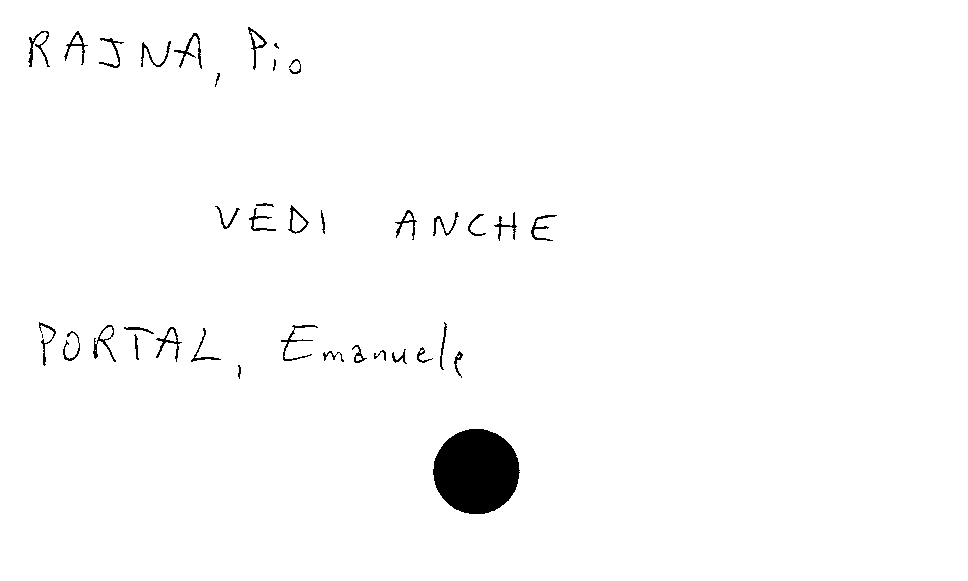 RAJNA, Pio
VEDI ANCHE
PORTAL, Emanuele